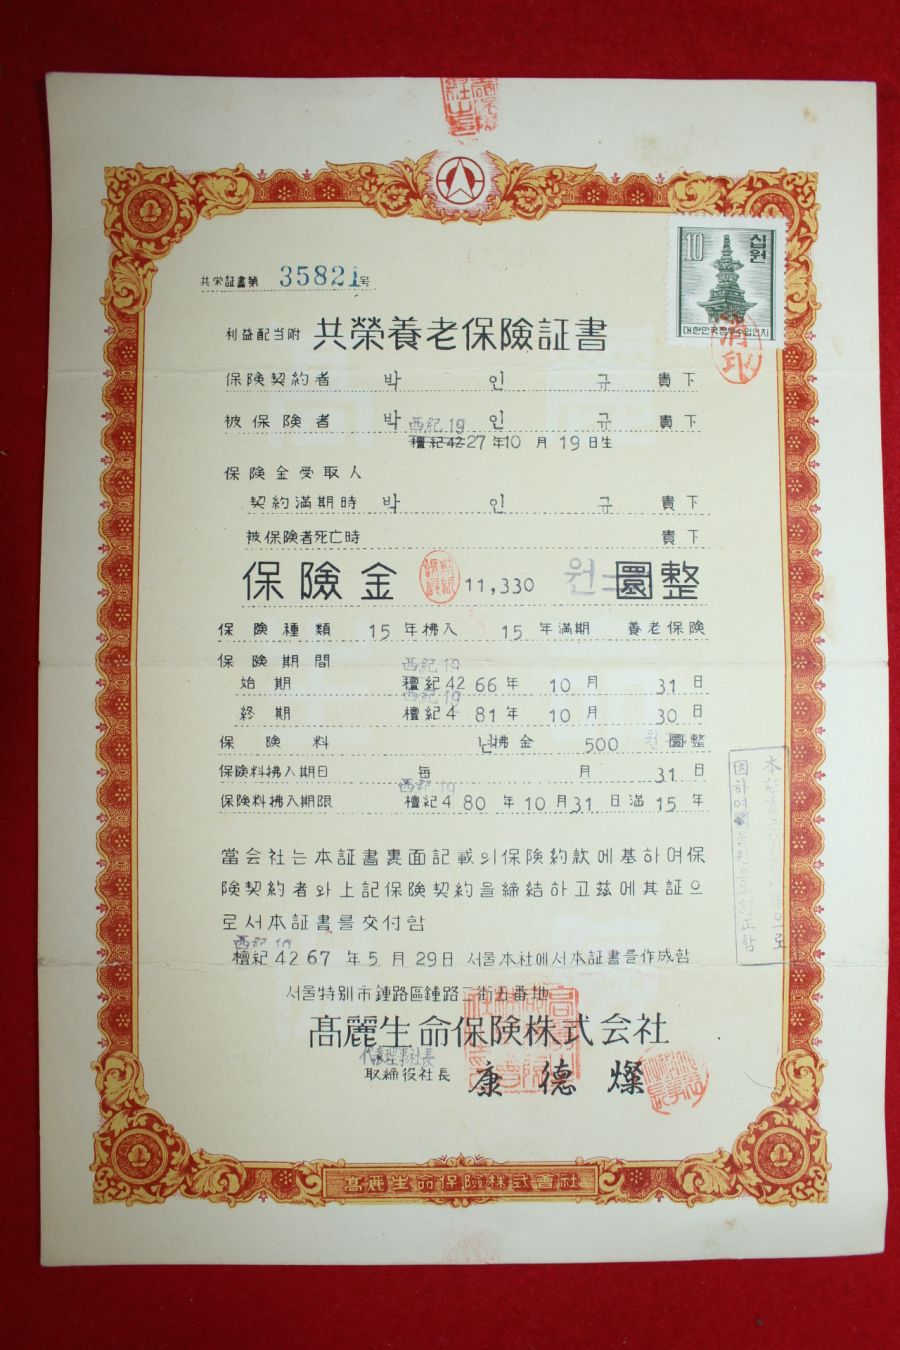 10 십원
대한민국정부수입인지
共栄証書第 35821号
利益配当附 共榮養老保險証書
保険契約者 박 인 규 貴下
被保険者 박 인 규 貴下
西紀19
檀紀4227年10月19日生
保険金受取人
契約満期時 박 인 규 貴下
被保険者死亡時 貴下
保險金 11,330 원 圜整
保険種類 15年拂入 15年満期 養老保険
保険期間
西紀19
始期 檀紀4266年 10月 31日
西紀19
終期 檀紀4 81年 10月 30日
保険料 년拂金 500 원 圜整
保険料拂入期日 每 月 31日
西紀19
保険料拂入期限 檀紀4 80年10月31日 満15年
當会社는本証書裏面記載의保険約款에基하여保
険契約者와上記保険契約을締結하고玆에其証으
로서本証書를交付함
西紀19
檀紀4267年5月29日 서울本社에서本証書를作成함
서울特別市鍾路區鍾路二街五番地
髙麗生命保険株式会社
代表理事社長
取締役社長 康德燦
髙麗生命保險株式會社